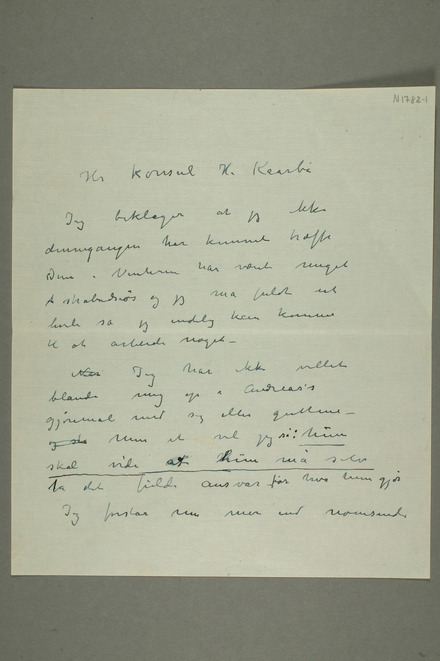 N1782-1
Hr Konsul H. Kaarbö
Jeg beklager at jeg ikke
dennegangen har kunnet træffe
Dem. Vinteren har været meget
og jeg må fuldt ut
så jeg endelig kan komme
til at arbeide noget –
Jeg har ikke villet
blande mig op i Andreas's
gjøremål med sig eller guttene –
men et vil jeg si: hun
skal vide at hun må selv
ta det fulde ansvar for hva hun gjør
Jeg forstår nu mer end